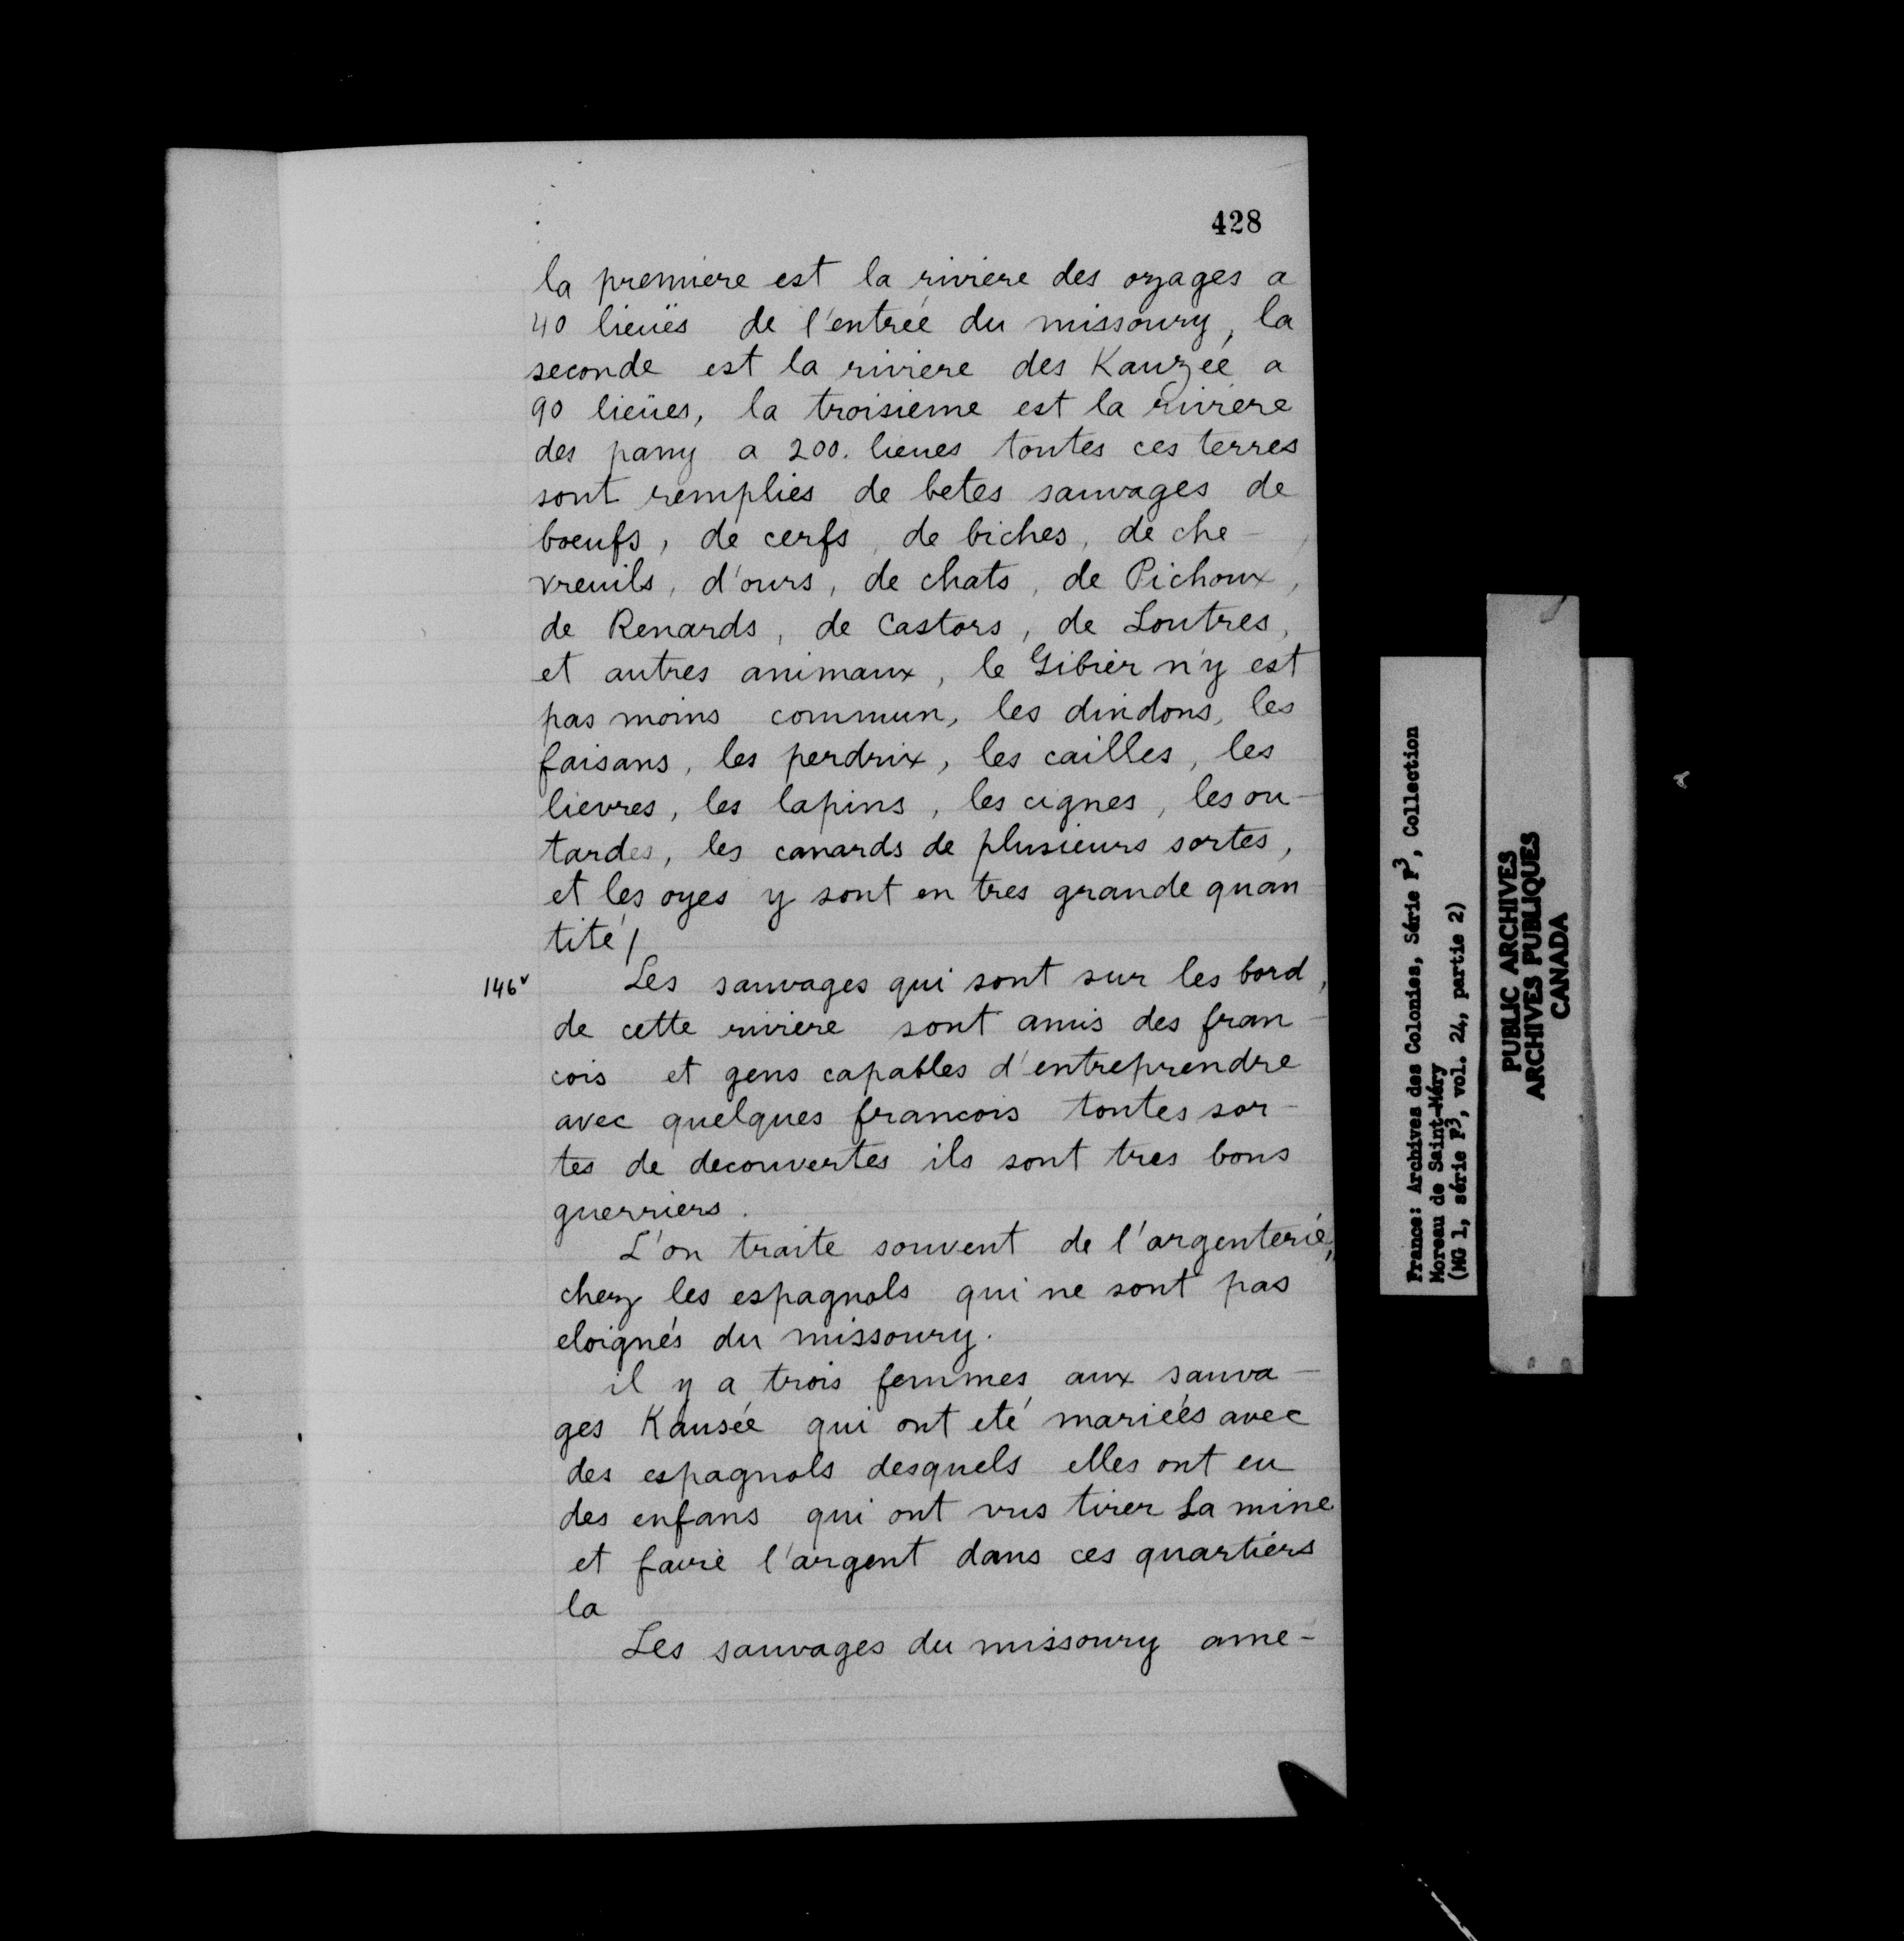 428
la premiere est la riviere des ozages a
40 lieuës de l'entreé du missoury, la
seconde est la riviere des Kauzeé a
90 lieües, la troisieme est la riviere
des pany a 200. lieues toutes ces terres
sont remplies de betes sauvages de
boeufs, de cerfs, de biches, de che-
vreuils, d'ours, de chats, de Pichoux,
de Renards, de Castors, de Loutres,
et autres animaux, le Gibier n'y est
pas moins commun, les dindons, les
faisans, les perdrix, les cailles, les
lievres, les lapins, les cignes, les ou-
tardes, les canards de plusieurs sortes,
et les oyes y sont en tres grande quan
tité/
146v Les sauvages qui sont sur les bord,
de cette riviere sont amis des fran-
cois et gens capables d'entreprendre
avec quelques francois toutes sor-
tes de decouvertes ils sont tres bons
guerriers.
L'on traite souvent de l'argenterie,
chez les espagnols qui ne sont pas
eloignés du missoury.
il y a trois femmes aux sauva-
ges Kausée qui ont eté marieés avec
des espagnols desquels elles ont eu
des enfans qui ont vus tirer La mine
et faire l'argent dans ces quartiers
la
Les sauvages du missoury ame-
France: Archives des Colonies, Série F3, Collection
Moreau de Saint-Méry
(MG 1, série F3, vol. 24, partie 2)
PUBLIC ARCHIVES
ARCHIVES PUBLIQUES
CANADA